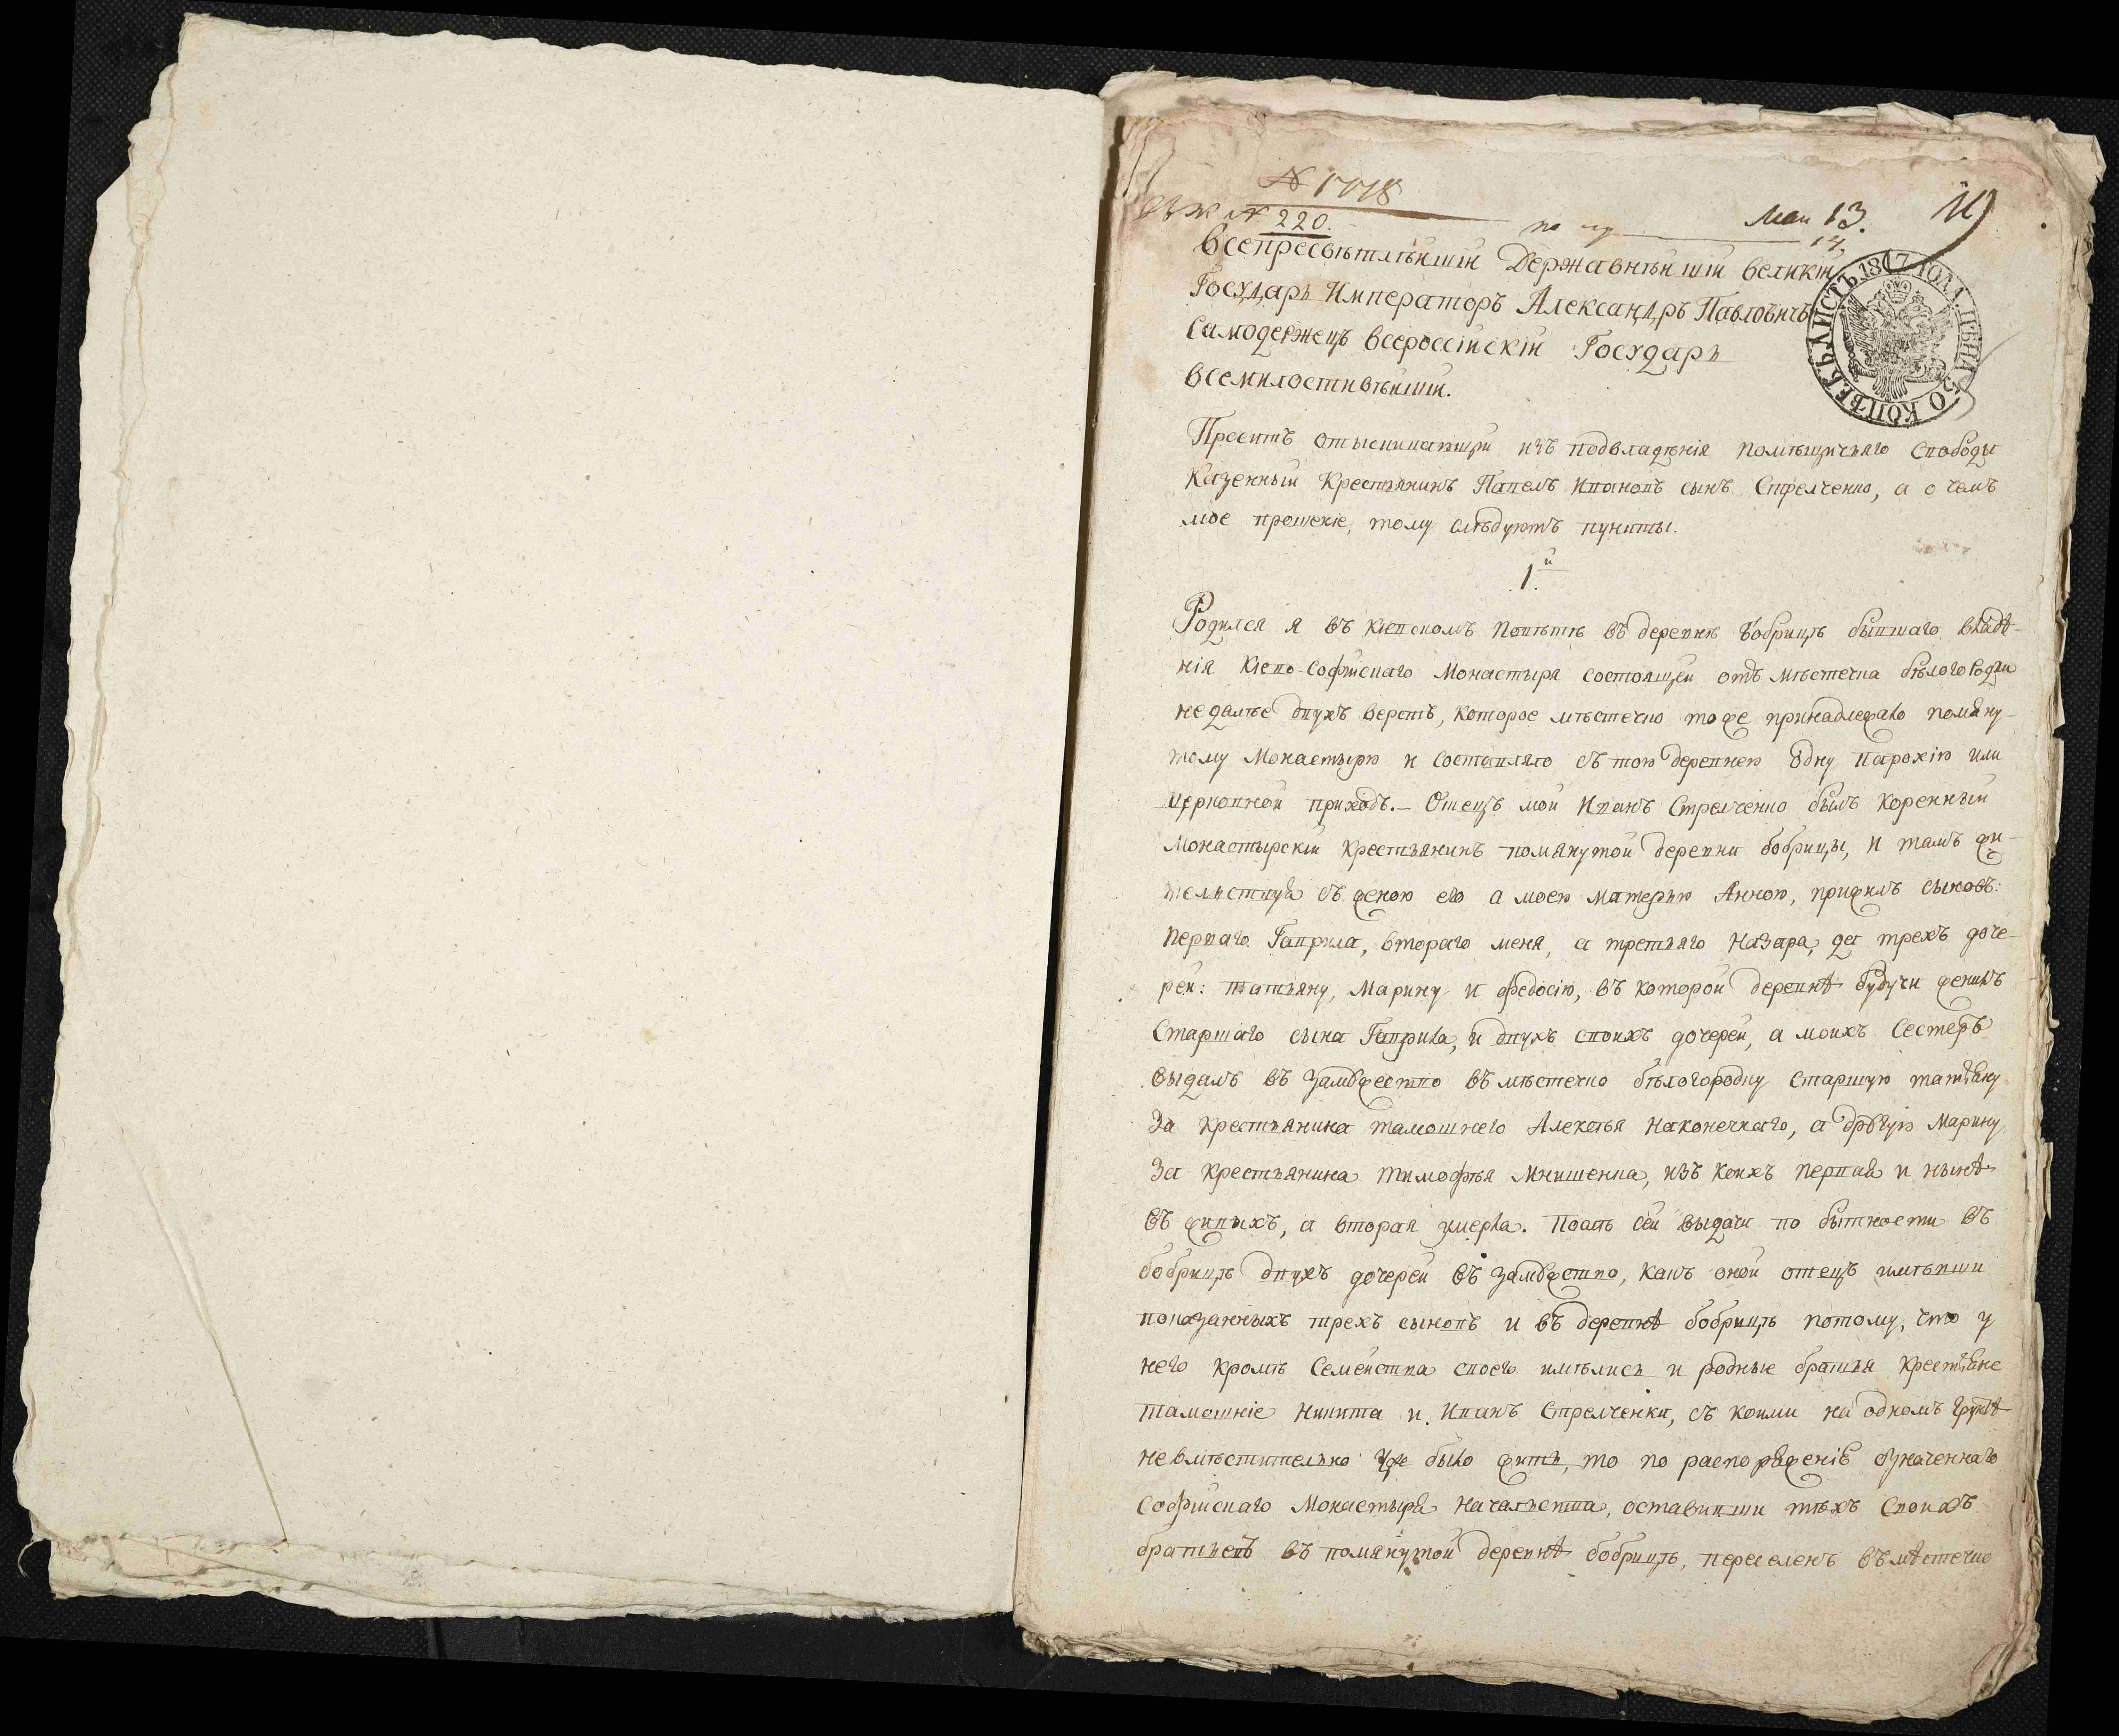 № 1778
№ 220.
Маи 13.
14.
Всепресвѣтлѣишіи Державнѣишіи Великіи
Государь Императоръ Александръ Павловичъ
Самодержецъ Всероссіискіи Государь
Всемилостивѣишіи.
ЛИСТЪ 1817 ГОДА. ЦѢНА 50 КОПѢЕКЪ
Проситъ отыскивающіи изъ подвладѣнія помѣщичьяго свободы
Казенныи Крестьянинъ Павелъ Ивановъ сынъ Стрелченко, а о чемъ
мое прошеніе, тому слѣдуютъ пункты.
1.й
Родился я въ Кіевскомъ Повѣтѣ въ деревнѣ Бобрицѣ бывшаго владѣ-
нія Кіево-Софійскаго Монастыря состоящеи отъ мѣстечка бѣлогородки
не далѣе двухъ верстъ, которое мѣстечко тоже принадлежало помяну-
тому Монастырю и составляло съ тою деревнею одну парохію или
церковной приходъ.- Отецъ мой Иванъ Стрелченко былъ коренныи
Монастырскіи крестьянинъ помянутой деревни бобрицы, и тамъ жи-
тельствуя съ женою его а моею матерью Анною, прижилъ сыновъ:
перваго Гаврила, втораго меня, а третьяго Назара, да трехъ доче-
рей: татьяну, Марину и Федосію, въ которой деревнѣ будучи женилъ
Старшаго сына Гаврила, и двухъ своихъ дочерей, а моихъ Сестеръ
выдалъ въ замужество въ мѣстечко бѣлогородку старшую татьяну
За крестьянина тамошнего Алексѣя Наконечнаго, а другую Марину
За крестьянина Тимофѣя Мнишенка, изъ коихъ первая и нынѣ
въ живыхъ, а вторая умерла. Послѣ сей выдачи по бытности въ
бобрицѣ двухъ дочерей въ замужство, какъ оной отецъ имѣвши
показанныхъ трехъ сыновъ и въ деревнѣ бобрицѣ потому, что у
него кромѣ Семейства своего имѣлись и родные братья крестьяне
тамошніе Никита и Иванъ Стрелченки, съ коими на одномъ грунтѣ
невмѣстительно уже было жить, то по распоряженію означеннаго
Софійскаго Монастыря начальства, оставивши тѣхъ своихъ
братьевъ въ помянутой деревнѣ бобрицѣ, переселенъ въ мѣстечко